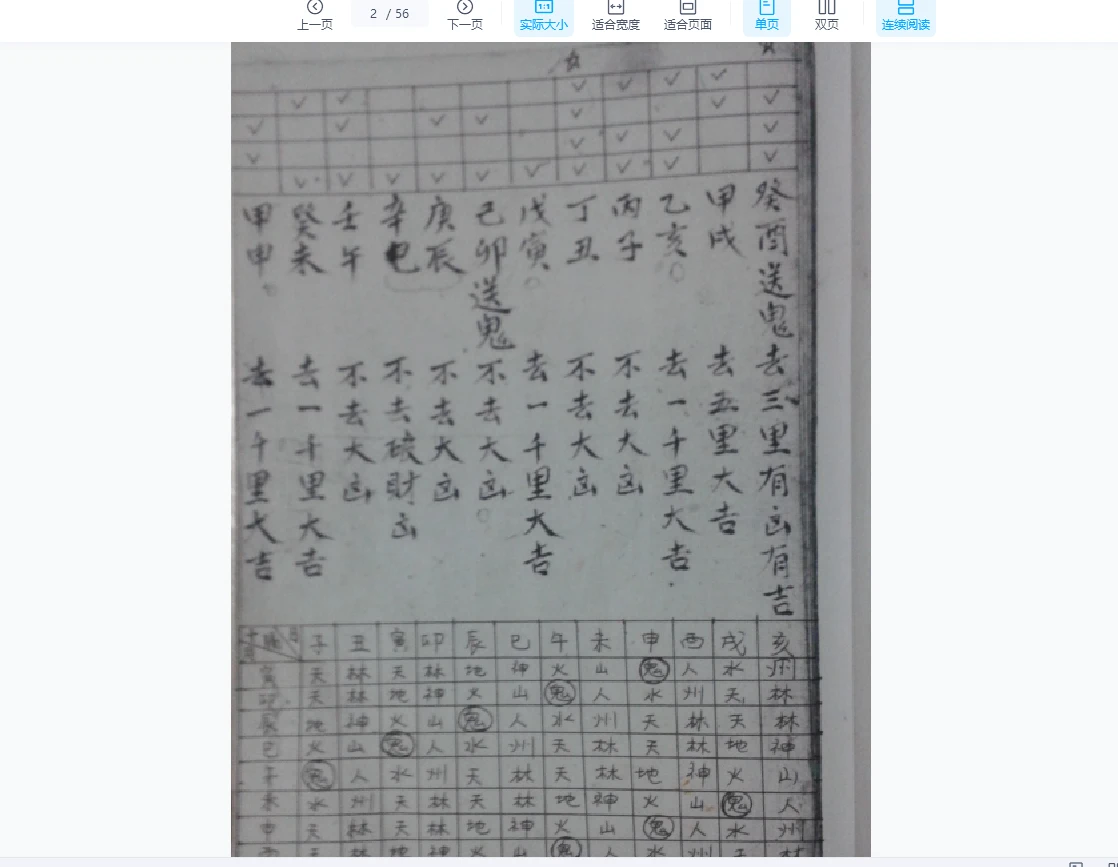 上一页
2 / 56
下一页
1:1
实际大小
适合宽度
适合页面
单页
双页
连续阅读
癸酉送鬼 去三里有凶有吉
甲戌 去五里大吉
乙亥 去一千里大吉
丙子 不去大凶
丁丑 不去大凶
戊寅 去一千里大吉
己卯送鬼 不去大凶
庚辰 不去大凶
辛巳 不去破財凶
壬午 不去大凶
癸未 去一千里大吉
甲申 去一千里大吉
子 丑 寅 卯 辰 巳 午 未 申 酉 戌 亥
寅 天 林 天 林 地 神 火 山 鬼 人 水 州
卯 天 林 地 神 火 山 鬼 人 水 州 天 林
辰 地 神 火 山 鬼 人 水 州 天 林 天 林
巳 火 山 鬼 人 水 州 天 林 天 林 地 神
午 鬼 人 水 州 天 林 天 林 地 神 火 山
未 水 州 天 林 天 林 地 神 火 山 鬼 人
申 天 林 天 林 地 神 火 山 鬼 人 水 州